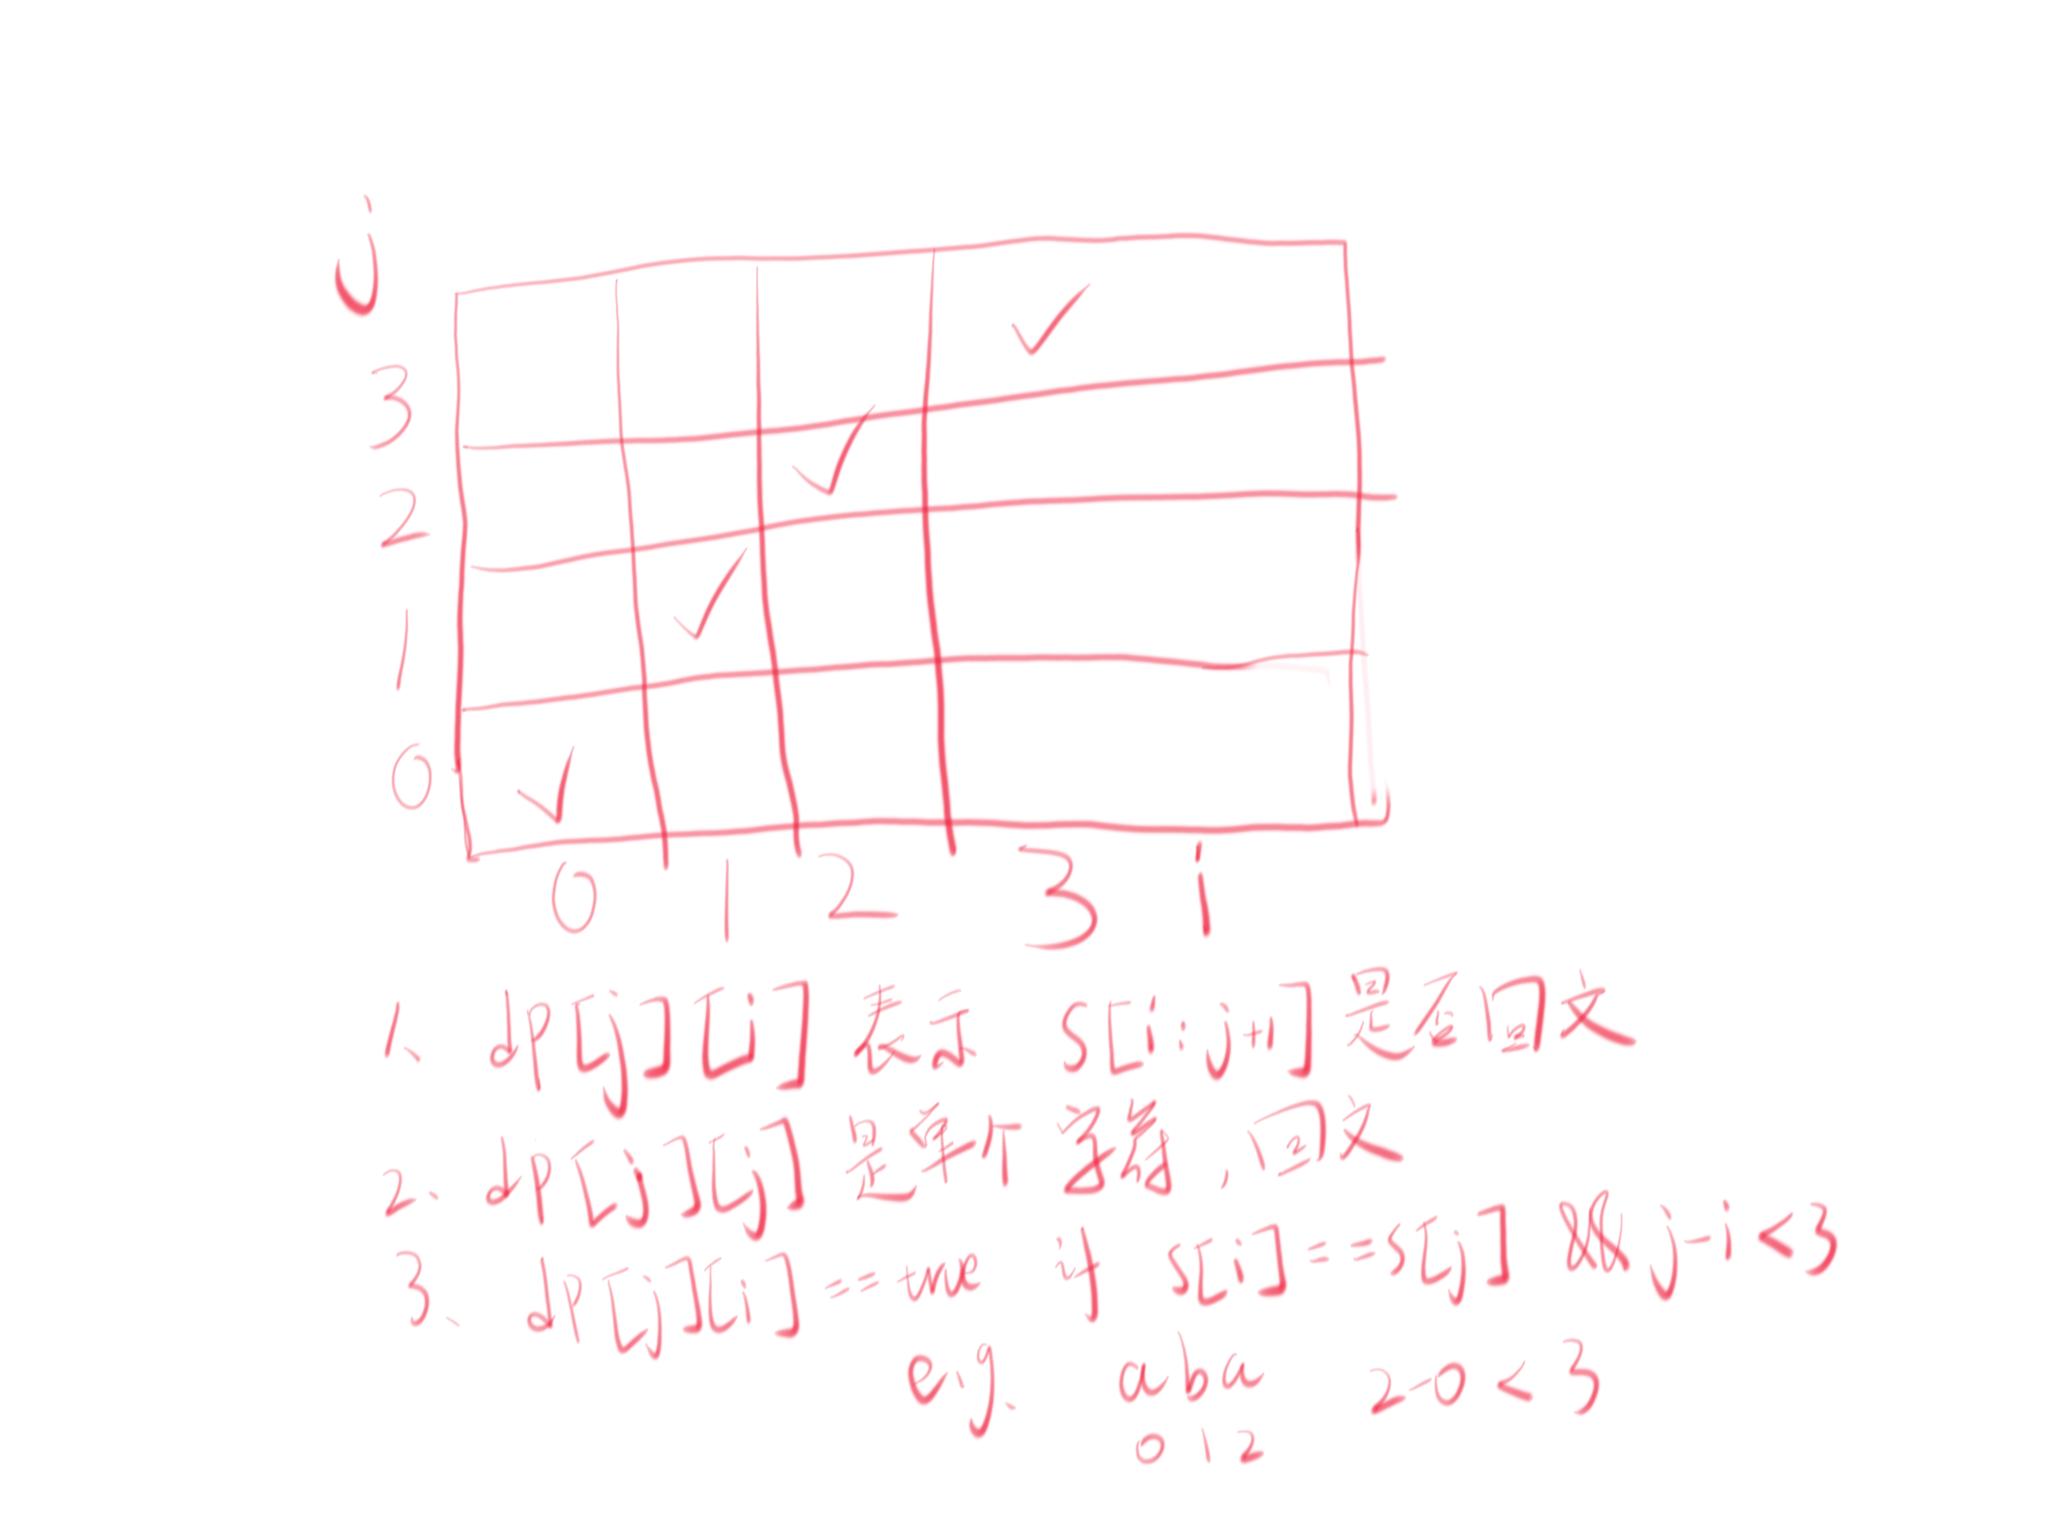 j
3
2
1
0
0 1 2 3 i
1、dp[j][i] 表示 s[i:j+1] 是否回文
2、dp[j][j] 是单个字符,回文
3、dp[j][i]==true if s[i]==s[j] && j-i<3
e.g. aba 2-0<3
0 1 2